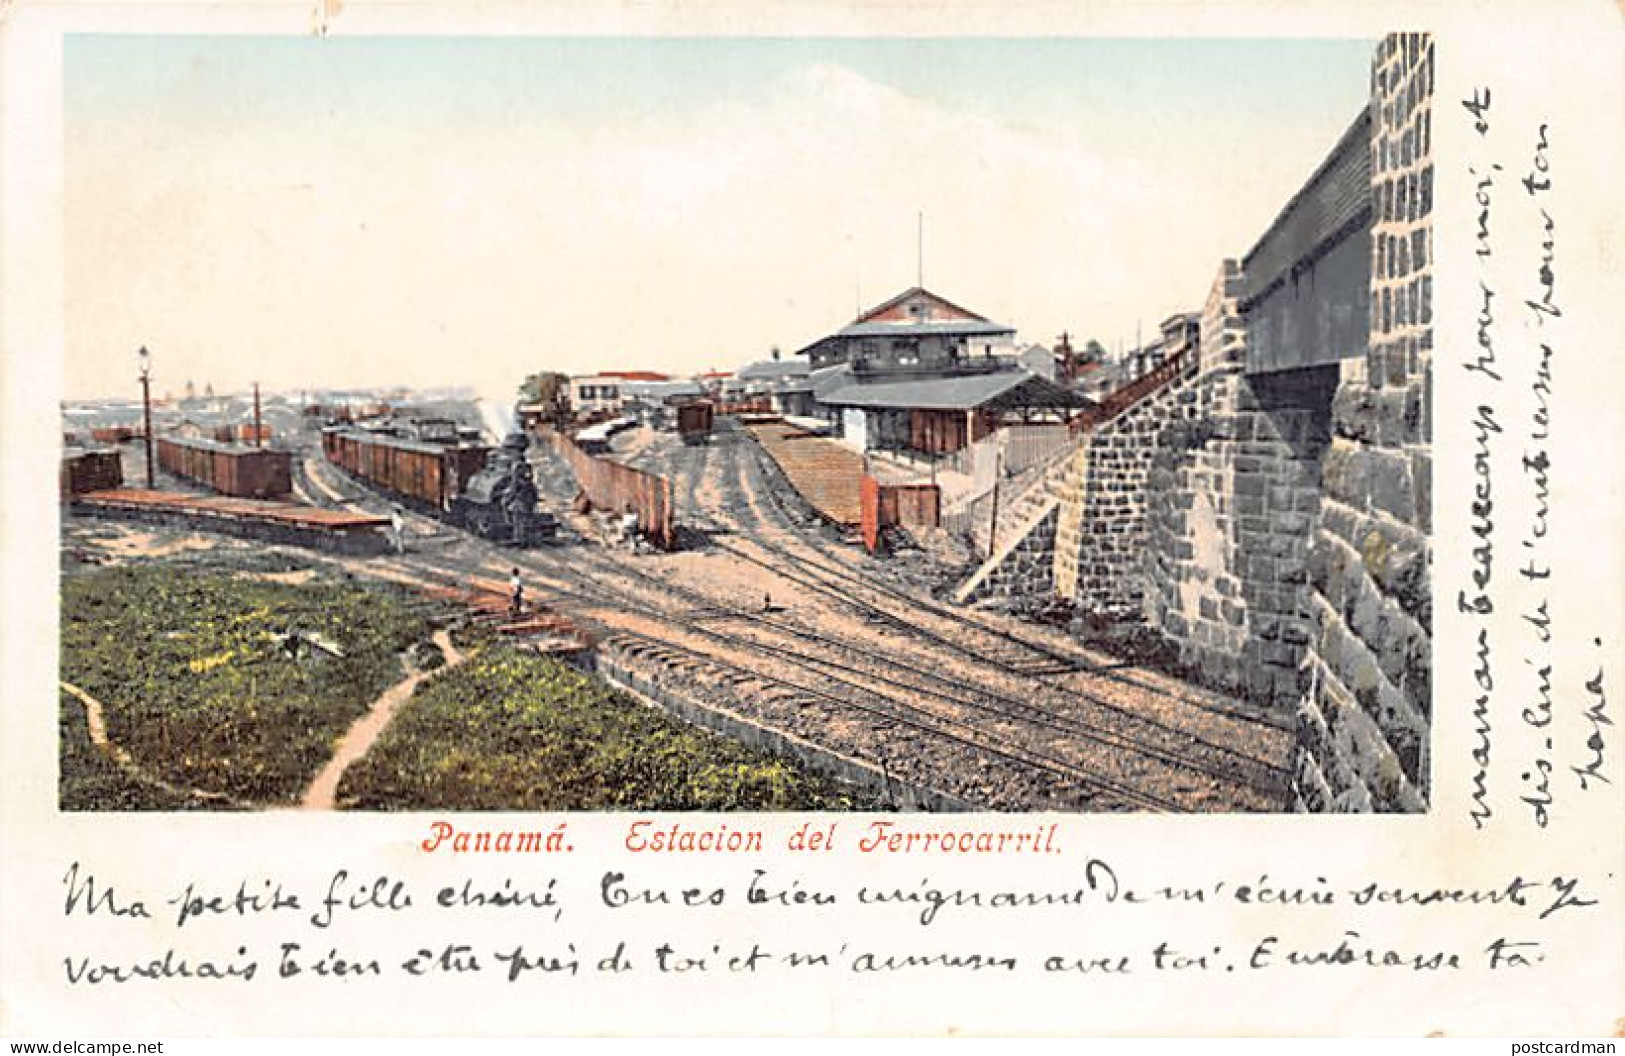 Panamá. Estacion del Ferrocarril.
Ma petite fille chéri, Tu es bien mignonne de m'écrire souvent Je
voudrais bien être près de toi et m'amuser avec toi. Embrasse ta
maman beaucoup pour moi, et
dis-lui de t'embrasser pour ton
papa.
www.delcampe.net
postcardman